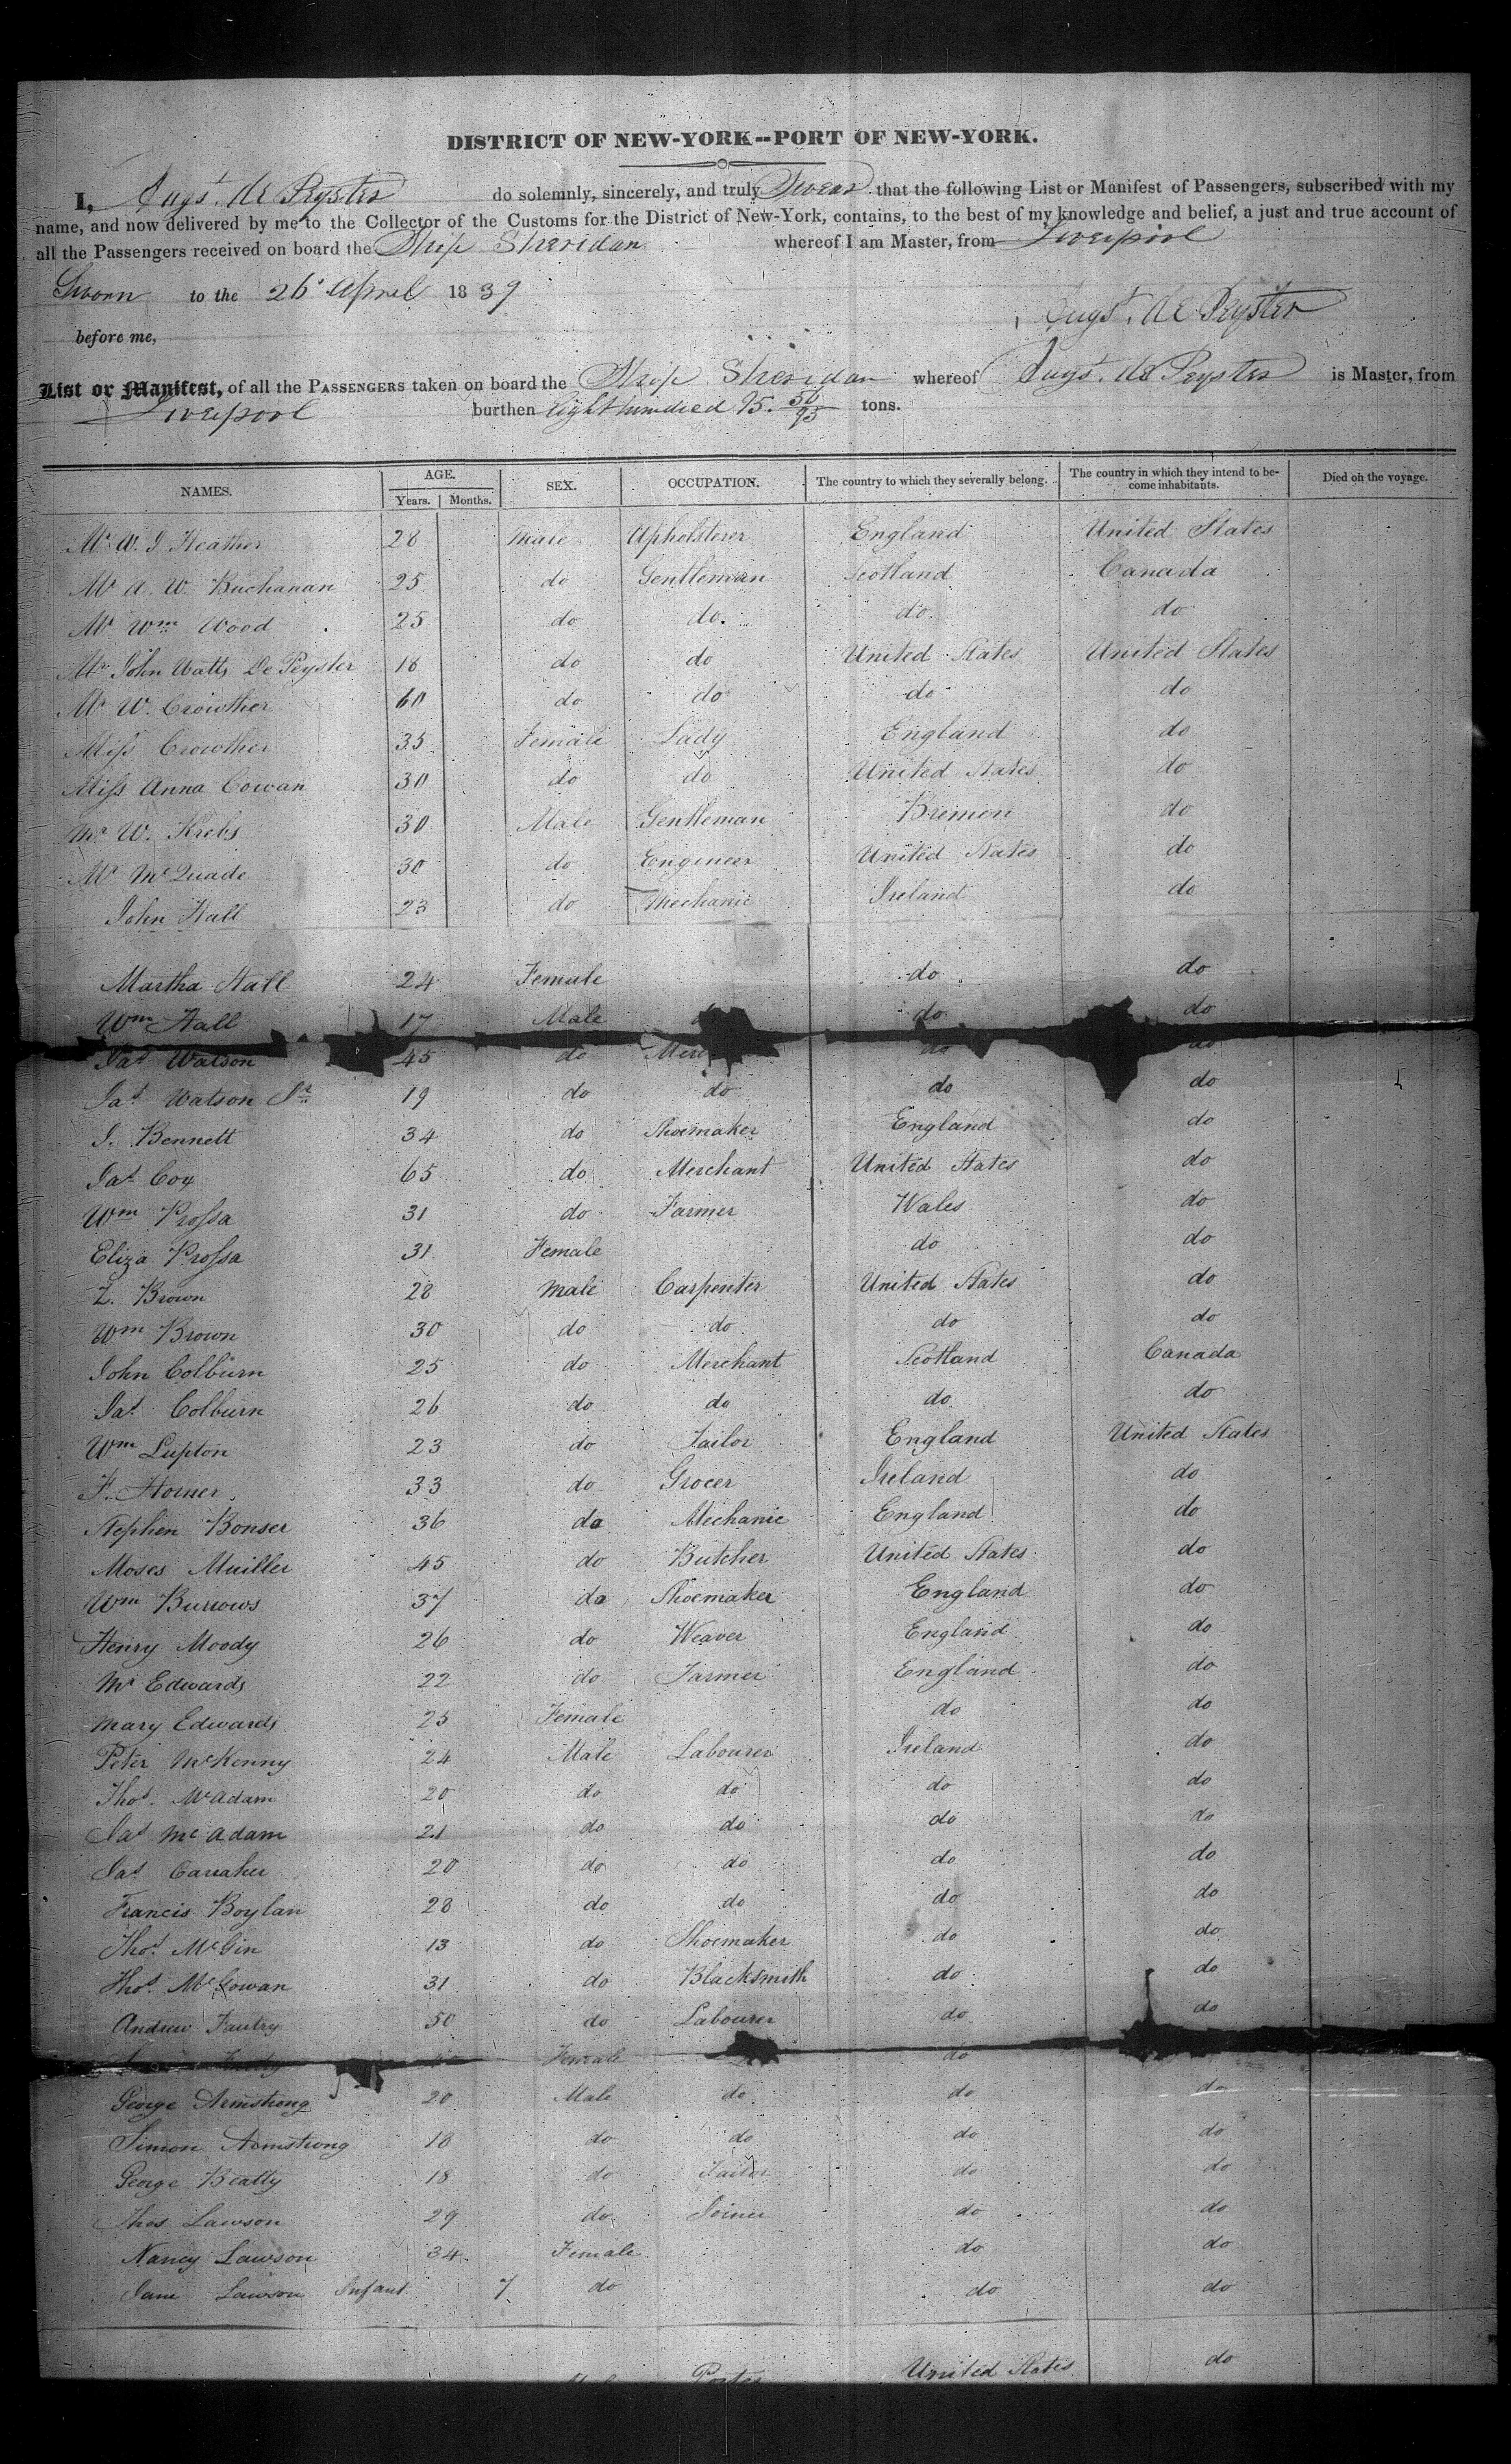 DISTRICT OF NEW-YORK--PORT OF NEW-YORK.
I, Augs. De Peyster do solemnly, sincerely, and truly Swear that the following List or Manifest of Passengers, subscribed with my
name, and now delivered by me to the Collector of the Customs for the District of New-York, contains, to the best of my knowledge and belief, a just and true account of
all the Passengers received on board the Ship Sheridan whereof I am Master, from Liverpool
Sworn to the 26 April 1839
Augst. De Peyster
before me,
List or Manifest, of all the PASSENGERS taken on board the Ship Sheridan whereof Augs. De Peyster is Master, from
Liverpool burthen Eight hundred 95. 50/95 tons.
NAMES. AGE. Years. Months. SEX. OCCUPATION. The country to which they severally belong. The country in which they intend to become inhabitants. Died on the voyage.
Mr W. J Heather 28 Male Upholsterer England United States
Mr A. W. Buchanan 25 do Gentleman Scotland Canada
Mr Wm Wood 25 do do. do. do
Mr John Watts De Peyster 18 do do United States United States
Mr W. Crowther 60 do do do do
Miss Crowther 35 Female Lady England do
Miss Anna Cowan 30 do do United States do
Mr W. Krebs 30 Male Gentleman Bremen do
Mr McQuade 30 do Engineer United States do
John Hall 23 do Mechanic Ireland do
Martha Hall 24 Female do do
Wm Hall 17 Male do do
Jas Watson 45 do do do
Jas Watson Jr 19 do do do do
J. Bennett 34 do Shoemaker England do
Jas Coy 65 do Merchant United States do
Wm Prossa 31 do Farmer Wales do
Eliza Prossa 31 Female do do
Z. Brown 28 Male Carpenter United States do
Wm Brown 30 do do do do
John Colburn 25 do Merchant Scotland Canada
Jas Colburn 26 do do do do
Wm Lupton 23 do Tailor England United States
F. Horner 33 do Grocer Ireland do
Stephen Bonser 36 do Mechanic England do
Moses Muiller 45 do Butcher United States do
Wm Burrows 37 do Shoemaker England do
Henry Moody 26 do Weaver England do
Mr Edwards 22 do Farmer England do
Mary Edwards 25 Female do do
Peter McKenny 24 Male Labourer Ireland do
Thos. McAdam 20 do do do do
Jas McAdam 21 do do do do
Jas Carraher 20 do do do do
Francis Boylan 28 do do do do
Thos McGin 13 do Shoemaker do do
Thos. McGowan 31 do Blacksmith do do
Andrew Fautry 50 do Labourer do do
Female do
George Armstrong 20 Male do do do
Simon Armstrong 18 do do do do
George Beatty 18 do Tailor do do
Thos Lawson 29 do Joiner do do
Nancy Lawson 34 Female do do
Jane Lawson Infant 7 do do do
Porter United States do